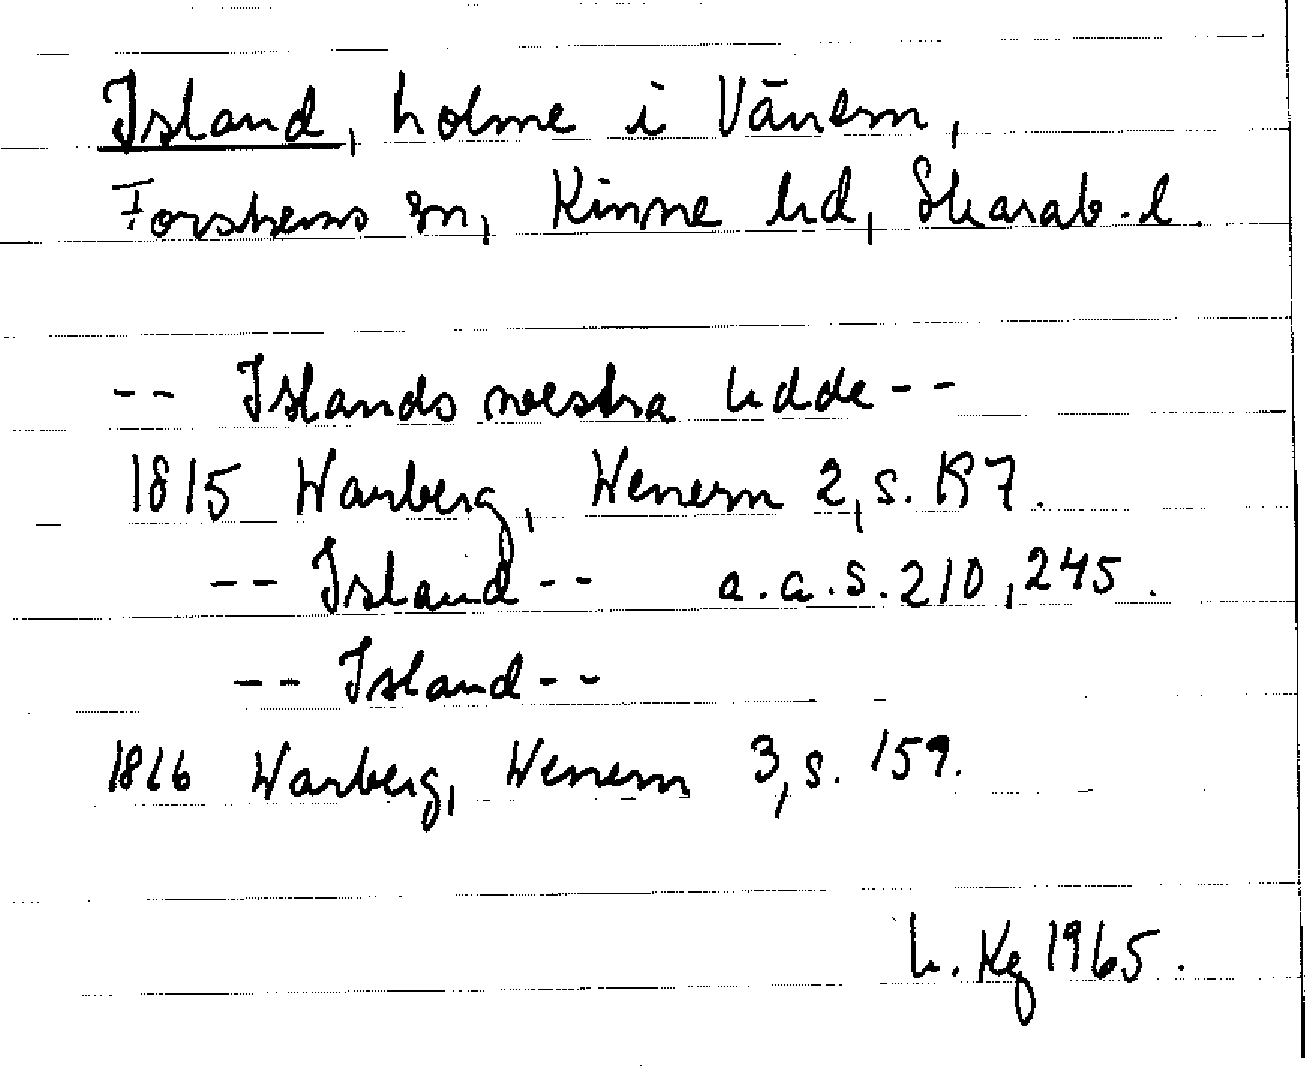 Island, holme i Vänern,
Forshems sn, Kinne hd, Skarab. l.
-- Islands westra udde --
1815 Warberg, Wenern 2, s. 197.
-- Island -- a. a. s. 210, 245.
-- Island --
1816 Warberg, Wenern 3, s. 159.
h. Kg 1965.